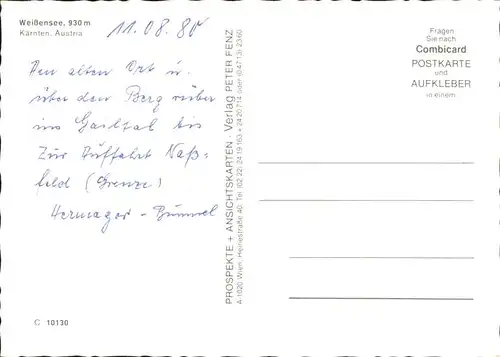 Weißensee, 930 m
Kärnten, Austria
11.08.80
Den alten Ort u.
über den Berg rüber
ins Gailtal bis
Zur Auffahrt Naß-
feld (Grenze)
Hermagor - Bummel
C 10130
PROSPEKTE + ANSICHTSKARTEN · Verlag PETER FENZ
A-1020 Wien, Heinestraße 40, Tel. (02 22) 24 19 163 + 24 20 714 oder (0 47 13) 23 60
Fragen
Sie nach
Combicard
POSTKARTE
und
AUFKLEBER
in einem